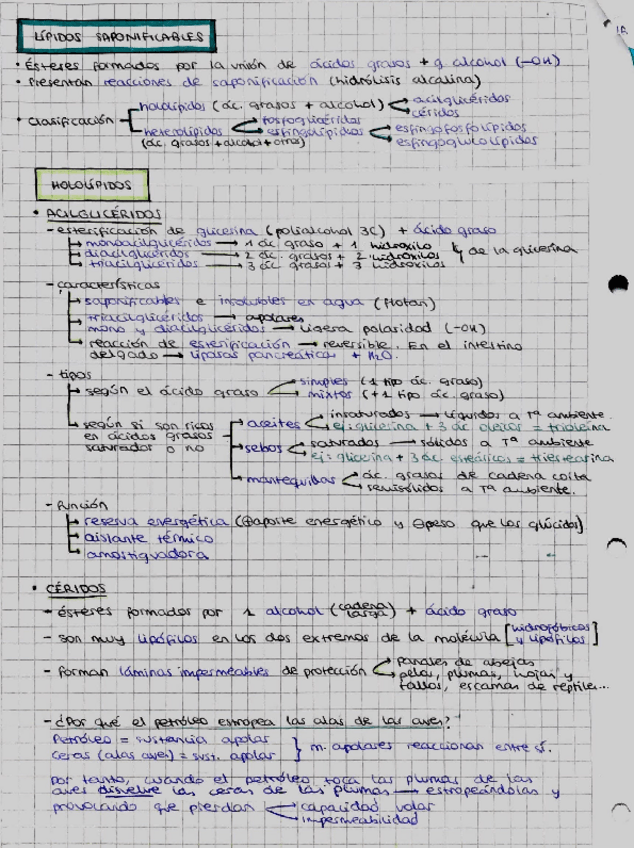 LÍPIDOS SAPONIFICABLES
• Ésteres formados por la unión de ácidos grasos + g. alcohol (-OH)
• Presentan reacciones de saponificación (hidrólisis alcalina)
• Clasificación
hololípidos (ác. grasos + alcohol)
acilglicéridos
céridos
heterolípidos
(ác. grasos + alcohol + otros)
fosfoglicéridos
esfingolípidos
esfingofosfolípidos
esfingoglucolípidos
HOLOLÍPIDOS
• ACILGLICÉRIDOS
- esterificación de glicerina (polialcohol 3C) + ácido graso
monoacilglicéridos → 1 ác. graso + 1 hidroxilo
diacilglicéridos → 2 ác. grasos + 2 hidroxilos
triacilglicéridos → 3 ác. grasos + 3 hidroxilos
de la glicerina
- características
saponificables e insolubles en agua (flotan)
triacilglicéridos → apolares
mono y diacilglicéridos → ligera polaridad (-OH)
reacción de esterificación → reversible. En el intestino
delgado → lipasas pancreáticas + H2O.
- tipos
según el ácido graso
simples (1 tipo ác. graso)
mixtos (+1 tipo ác. graso)
según si son ricos
en ácidos grasos
saturados o no
aceites
insaturados → líquidos a Tª ambiente.
ej: glicerina + 3 ác. oleicos = trioleína
sebos
saturados → sólidos a Tª ambiente
ej: glicerina + 3 ác. esteáricos = triestearina
mantequillas
ác. grasos de cadena corta
semisólidos a Tª ambiente.
- función
reserva energética (⊕aporte energético y ⊖peso que los glúcidos)
aislante térmico
amortiguadora
• CÉRIDOS
- ésteres formados por 1 alcohol (cadena larga) + ácido graso
- son muy lipófilos en los dos extremos de la molécula [hidrofóbicos y lipófilos]
- forman láminas impermeables de protección
panales de abejas
pelos, plumas, hojas y
tallos, escamas de reptiles...
- ¿Por qué el petróleo estropea las alas de las aves?
Petróleo = sustancia apolar
Ceras (alas aves) = sust. apolar
m. apolares reaccionan entre sí.
por tanto, cuando el petróleo toca las plumas de las
aves disuelve las ceras de las plumas → estropeándolas y
provocando que pierdan
capacidad volar
impermeabilidad